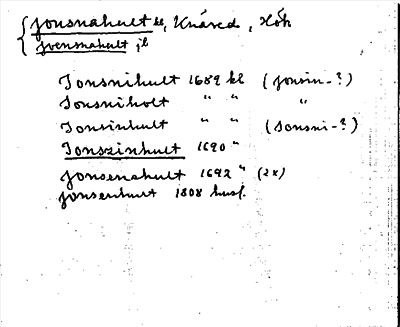 Jonsnahult kl, Knäred, Hök
Joensnahult, jb
Jonsnihult 1689 kl (Jonsin-?)
Jonsniholt " " "
Jonsinhult " " (Jonsni-?)
Jonszinhult 1690 "
Jonsenahult 1692 " (2x)
Jonsenhult 1808 husf.